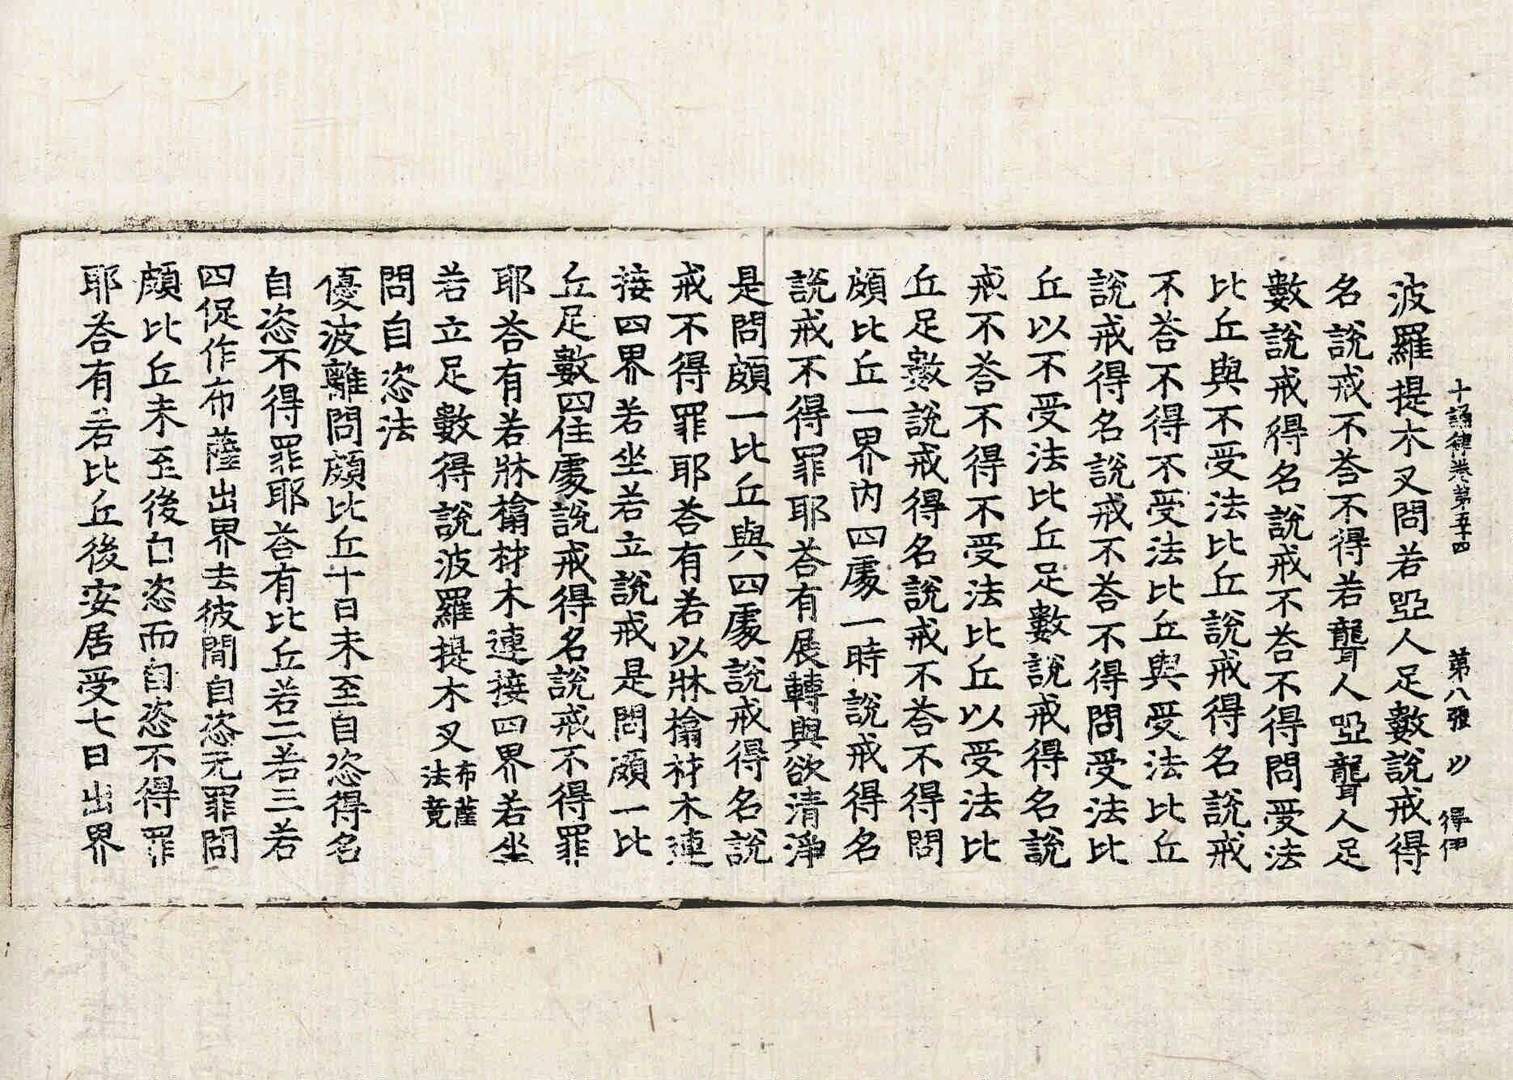 十誦律卷第五十四 第八張 以 得伊
波羅提木叉問若啞人足數說戒得
名說戒不荅不得若聾人啞聾人足
數說戒得名說戒不荅不得問受法
比丘與不受法比丘說戒得名說戒
不荅不得不受法比丘與受法比丘
說戒得名說戒不荅不得問受法比
丘以不受法比丘足數說戒得名說
戒不荅不得不受法比丘以受法比
丘足數說戒得名說戒不荅不得問
頗比丘一界內四處一時說戒得名
說戒不得罪耶荅有展轉與欲清淨
是問頗一比丘與四處說戒得名說
戒不得罪耶荅有若以牀榻材木連
接四界若坐若立說戒是問頗一比
丘足數四住處說戒得名說戒不得罪
耶荅有若牀榻材木連接四界若坐
若立足數得說波羅提木叉布薩法竟
問自恣法
優波離問頗比丘十日未至自恣得名
自恣不得罪耶荅有比丘若二若三若
四促作布薩出界去彼間自恣无罪問
頗比丘未至後自恣而自恣不得罪
耶荅有若比丘後安居受七日出界